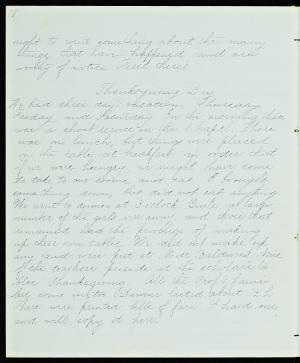 18
ought to write something about the many
things that have happened and are
worthy of notice
Thanksgiving Day
We had three day's vacation, Thursday
Friday and Saturday. In the morning there
was a short service in the Chapel. There
was no lunch, but things were placed
on the table at breakfast in order that
if we were hungry, we might have some
to take to our rooms, and had I brought
something down, but did not eat anything
We went to dinner at 3 o'clock. Quite a large
number of the girls were away, and those that
remained had the privilege of making
up their own table. We did not make up
any and were put at Miss
the teachers friends of the scholars to
Thanksgiving. All the Prof's fami-
lies came in too. Dinner lasted about 1 2 h
There were printed bills of fare. I had one,
and will copy it here.